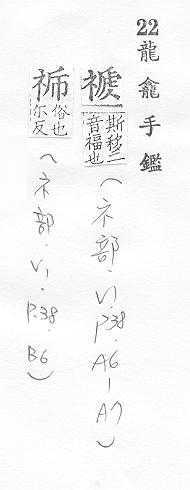 22龍龕手鑑
禠斯移二音福也(ネ部.V1.P.38.A6-A7)
俗也尓反(ネ部.V1.P.38.B6)